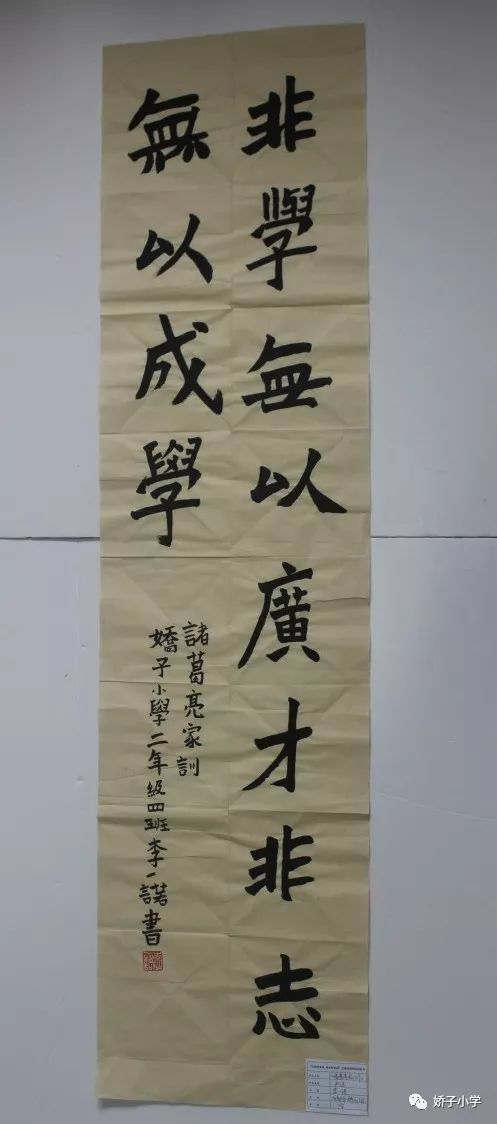 非學無以廣才非志
無以成學
諸葛亮家訓
嬌子小學二年級四班李一諾書
娇子小学